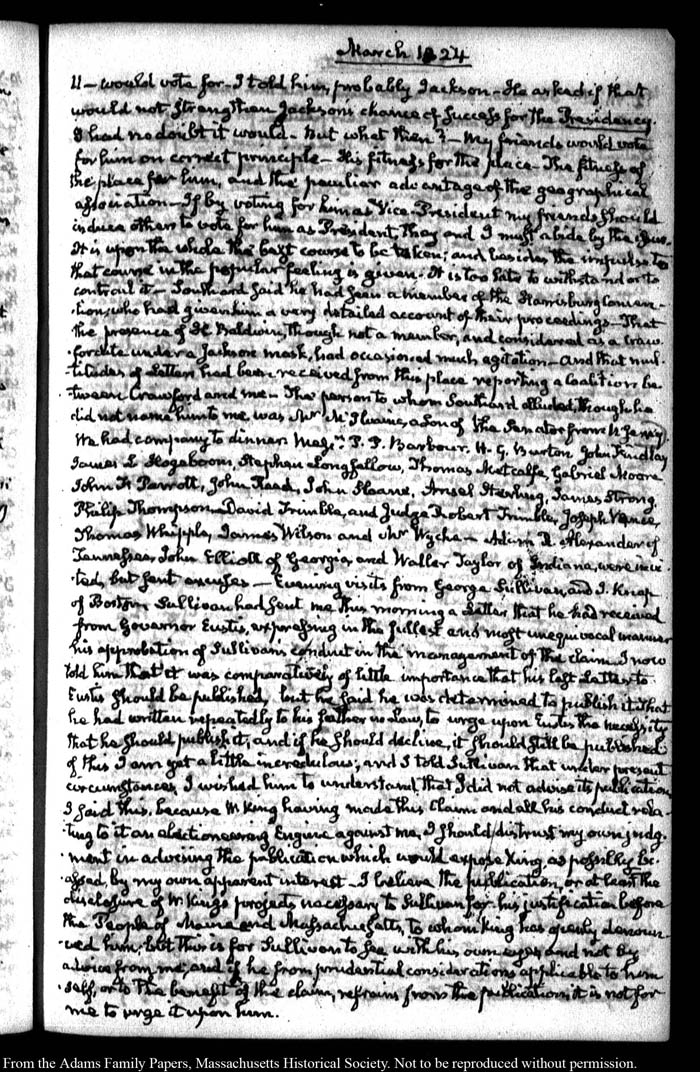 March 1824
11 — would vote for — I told him, probably Jackson — He asked if that
would not strengthen Jackson's chance of success for the Presidency.
I had no doubt it would — But what then? — My friends would vote
for him on correct principle — His fitness for the place — The fitness of
the place for him, and the peculiar advantage of the geographical
association — If by voting for him as Vice-President my friends should
induce others to vote for him as President, they and I must abide by the issue.
It is upon the whole the best course to be taken; and besides the impulse to
that course in the popular feeling is given. It is too late to withstand or to
controul it — Southard said he had seen a member of the Harrisburg Conven-
-tion, who had given him a very detailed account of their proceedings — That
the presence of H. Baldwin, though not a member, and considered as a Craw-
-fordite under a Jackson mask, had occasioned much agitation — And that mul-
-titudes of Letters had been received from this place reporting a coalition be-
tween Crawford and me — The person to whom Southard alluded, though he
did not name him to me was Mr McIlvaine, a Son of the Senator from N. Jersey.
We had company to dinner. Messrs P. P. Barbour, H. G. Burton John Findlay
James L Hogeboom, Stephen Longfellow, Thomas Metcalfe, Gabriel Moore
John F. Parrott, John Reed, John Sloane, Ansel Sterling, James Strong,
Philip Thompson David Trimble, and Judge Robert Trimble, Joseph Vance,
Thomas Whipple, James Wilson and Mr Wyche — Adam R. Alexander of
Tennessee, John Elliott of Georgia, and Waller Taylor of Indiana, were invi-
-ted, but sent excuses — Evening visits from George Sullivan, and J. Knap
of Boston. Sullivan had sent me this morning a Letter that he had received
from Governor Eustis, expressing in the fullest and most unequivocal manner
his approbation of Sullivan's conduct in the management of the claim. I now
told him that it was comparatively of little importance that his last Letter to
Eustis should be published, but he said he was determined to publish it. That
he had written repeatedly to his father in Law, to urge upon Eustis the necessity
that he should publish it; and if he should decline, it should still be published.
of this I am yet a little incredulous; and I told Sullivan that under present
circumstances, I wished him to understand, that I did not advise its publication.
I said this, because W. King having made this Claim and all his conduct rela-
-ting to it an electioneering Engine against me, I should distrust my own judg-
-ment in advising the publication which would expose King, as possibly bi-
-assed, by my own apparent interest — I believe the publication, or at least the
disclosure of W. King's projects necessary to Sullivan for his justification before
the People of Maine and Massachusetts, to whom King has openly denoun-
-ced him; but this is for Sullivan to see with his own eyes and not by
advice from me; and if he from prudential considerations applicable to him-
-self, or to the benefit of the claim, refrains from the publication, it is not for
me to urge it upon him.
From the Adams Family Papers, Massachusetts Historical Society. Not to be reproduced without permission.